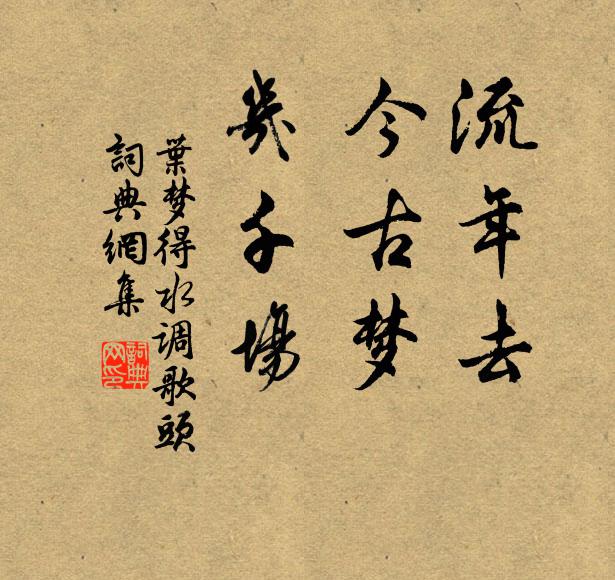 流年去
今古梦
几千場
葉梦得水调歌頭
詞典網集
詞典网印